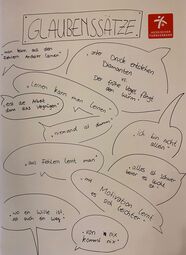 GLAUBENSSÄTZE
"man kann aus den
Fehlern anderer lernen"
"unter Druck entstehen
Diamanten
vs.
Der frühe Vogel fängt
den Wurm"
"Lernen kann man lernen"
"erst die Arbeit
dann das Vergnügen"
"niemand ist dumm"
"ich bin nicht
allein"
"aus Fehlern lernt man"
"alles ist schwer
bevor es
ist"
"mit
Motivation lernt
es sich
leichter"
"wo ein Wille ist,
ist auch ein Weg"
"von nix
kommt nix"